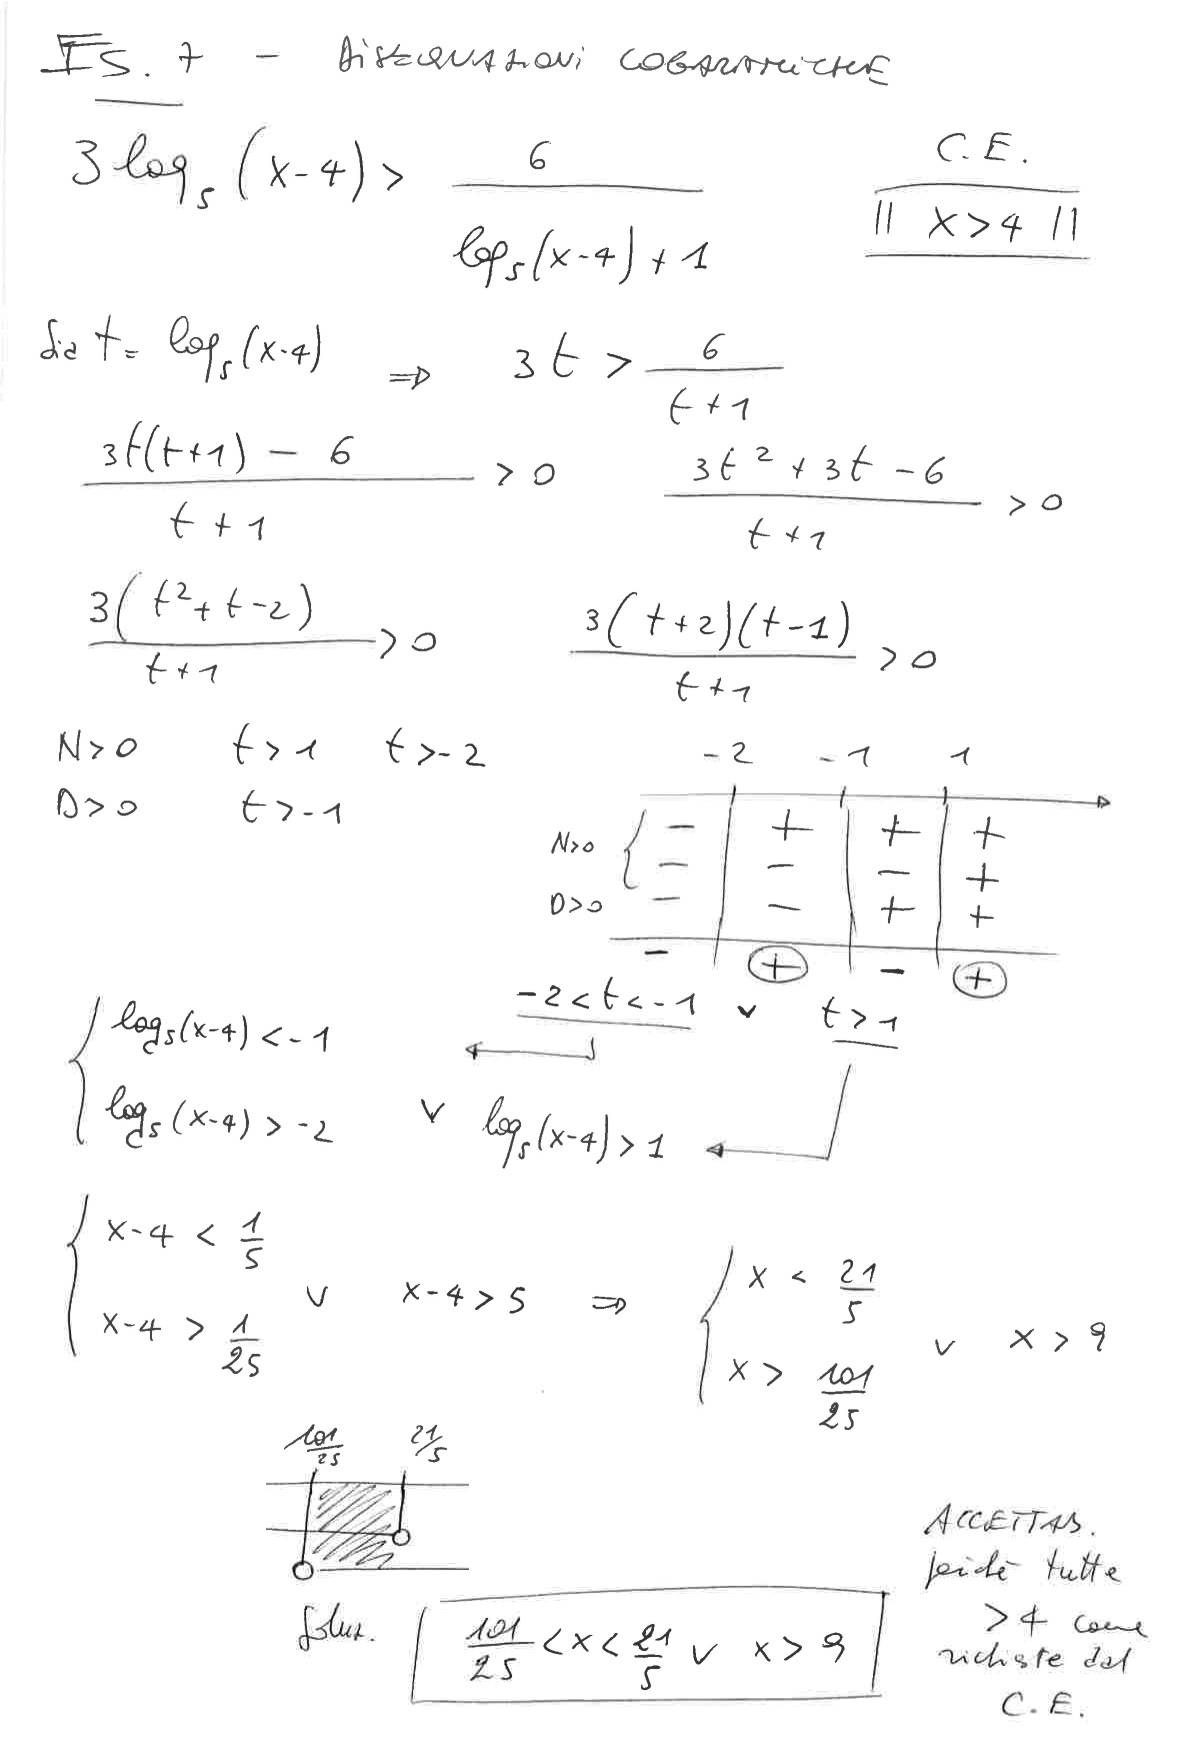 ES. 7 - DISEQUAZIONI LOGARITMICHE
3 log₅ (x-4) > 6 / (log₅(x-4) + 1)
C.E.
|| x>4 ||
Sia t = log₅(x-4) ⇒ 3t > 6 / (t+1)
(3t(t+1) - 6) / (t+1) > 0 (3t² + 3t - 6) / (t+1) > 0
3(t²+t-2) / (t+1) > 0 3(t+2)(t-1) / (t+1) > 0
N>0 t>1 t>-2
D>0 t>-1
-2 -1 1
N>0 { - + + +
- - - +
D>0 - - + +
- + - +
-2<t<-1 ∨ t>1
{ log₅(x-4) < -1
log₅(x-4) > -2 ∨ log₅(x-4) > 1
{ x-4 < 1/5
x-4 > 1/25 ∨ x-4 > 5 ⇒ { x < 21/5
x > 101/25 ∨ x > 9
101/25 21/5
Soluz. 101/25 < x < 21/5 ∨ x > 9
ACCETTAB.
perché tutte
>4 come
richiesto dal
C.E.